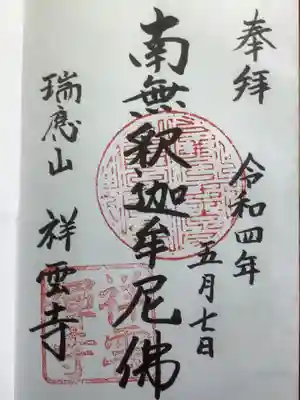 奉拝
令和四年
五月七日
南無釈迦牟尼佛
瑞應山
祥雲寺
祥雲
禅寺